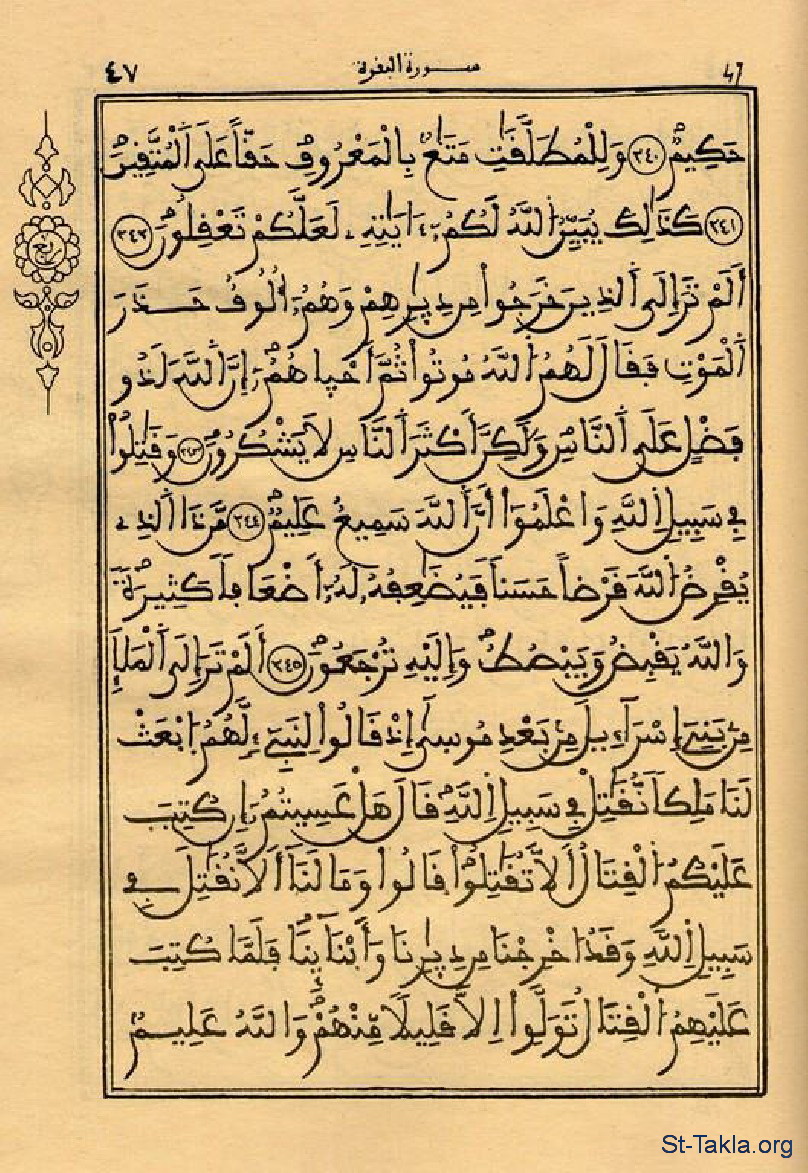 ٤٧ سورة البقرة 47
حَكِيمٌ ٢٤٠ وَلِلْمُطَلَّقَٰتِ مَتَٰعٌ بِالْمَعْرُوفِ حَقّاً عَلَى اَلْمُتَّقِينَ
٢٤١ كَذَٰلِكَ يُبَيِّنُ اُللَّهُ لَكُمُۥٓ ءَايَٰتِهِۦ لَعَلَّكُمْ تَعْقِلُونَ ٢٤٢
أَلَمْ تَرَ إِلَى اَلذِينَ خَرَجُواْ مِن دِيٰرِهِمْ وَهُمُۥٓ أُلُوفٌ حَذَرَ
اَلْمَوْتِ فَقَالَ لَهُمُ اُللَّهُ مُوتُواْ ثُمَّ أَحْيٰاهُمُۥٓ إِنَّ اَللَّهَ لَذُو
فَضْلٍ عَلَى اَلنَّاسِ وَلَٰكِنَّ أَكْثَرَ اَلنَّاسِ لَا يَشْكُرُونَ ٢٤٣ وَقَٰتِلُواْ
فِي سَبِيلِ اِللَّهِ وَاعْلَمُوٓاْ أَنَّ اَللَّهَ سَمِيعٌ عَلِيمٌ ٢٤٤ مَّن ذَا اَلذِي
يُقْرِضُ اُللَّهَ قَرْضاً حَسَناً فَيُضَٰعِفُهُۥ لَهُۥٓ أَضْعَافاً كَثِيرَةً
وَاللَّهُ يَقْبِضُ وَيَبْصُطُ وَإِلَيْهِ تُرْجَعُونَ ٢٤٥ أَلَمْ تَرَ إِلَى اَلْمَلَإِ
مِنۢ بَنِيٓ إِسْرَآءِيلَ مِنۢ بَعْدِ مُوسَىٰٓ إِذْ قَالُواْ لِنَبِيٓءٍ لَّهُمُ اُبْعَثْ
لَنَا مَلِكاً نُّقَٰتِلْ فِي سَبِيلِ اِللَّهِ قَالَ هَلْ عَسِيتُمُۥٓ إِن كُتِبَ
عَلَيْكُمُ اُلْقِتَالُ أَلَّا تُقَٰتِلُواْ قَالُواْ وَمَا لَنَآ أَلَّا نُقَٰتِلَ فِي
سَبِيلِ اِللَّهِ وَقَدُ اُخْرِجْنَا مِن دِيٰرِنَا وَأَبْنَآئِنَا فَلَمَّا كُتِبَ
عَلَيْهِمُ اُلْقِتَالُ تَوَلَّوِاْ اِلَّا قَلِيلًا مِّنْهُمْ وَاللَّهُ عَلِيمٌ
St-Takla.org